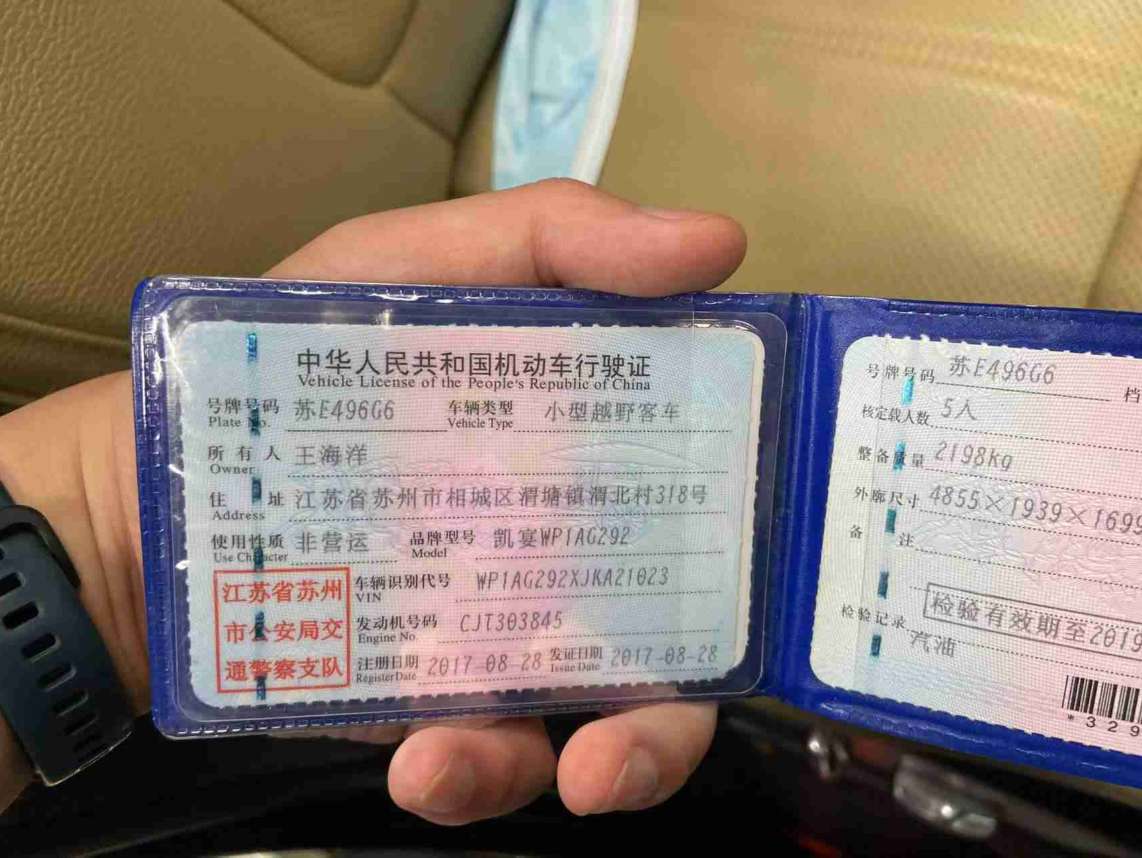 中华人民共和国机动车行驶证
Vehicle License of the People's Republic of China
号牌号码 苏E496G6 车辆类型 小型越野客车
Plate No. Vehicle Type
所有人 王海洋
Owner
住址 江苏省苏州市相城区渭塘镇渭北村318号
Address
使用性质 非营运 品牌型号 凯宴WP1AG292
Use Character Model
江苏省苏州
市公安局交
通警察支队
车辆识别代号 WP1AG292XJKA21023
VIN
发动机号码 CJT303845
Engine No.
注册日期 2017-08-28 发证日期 2017-08-28
Register Date Issue Date
号牌号码 苏E496G6 档
核定载人数 5人
整备质量 2198kg
外廓尺寸 4855×1939×1699
备注
检验有效期至2019
检验记录
汽油
*329